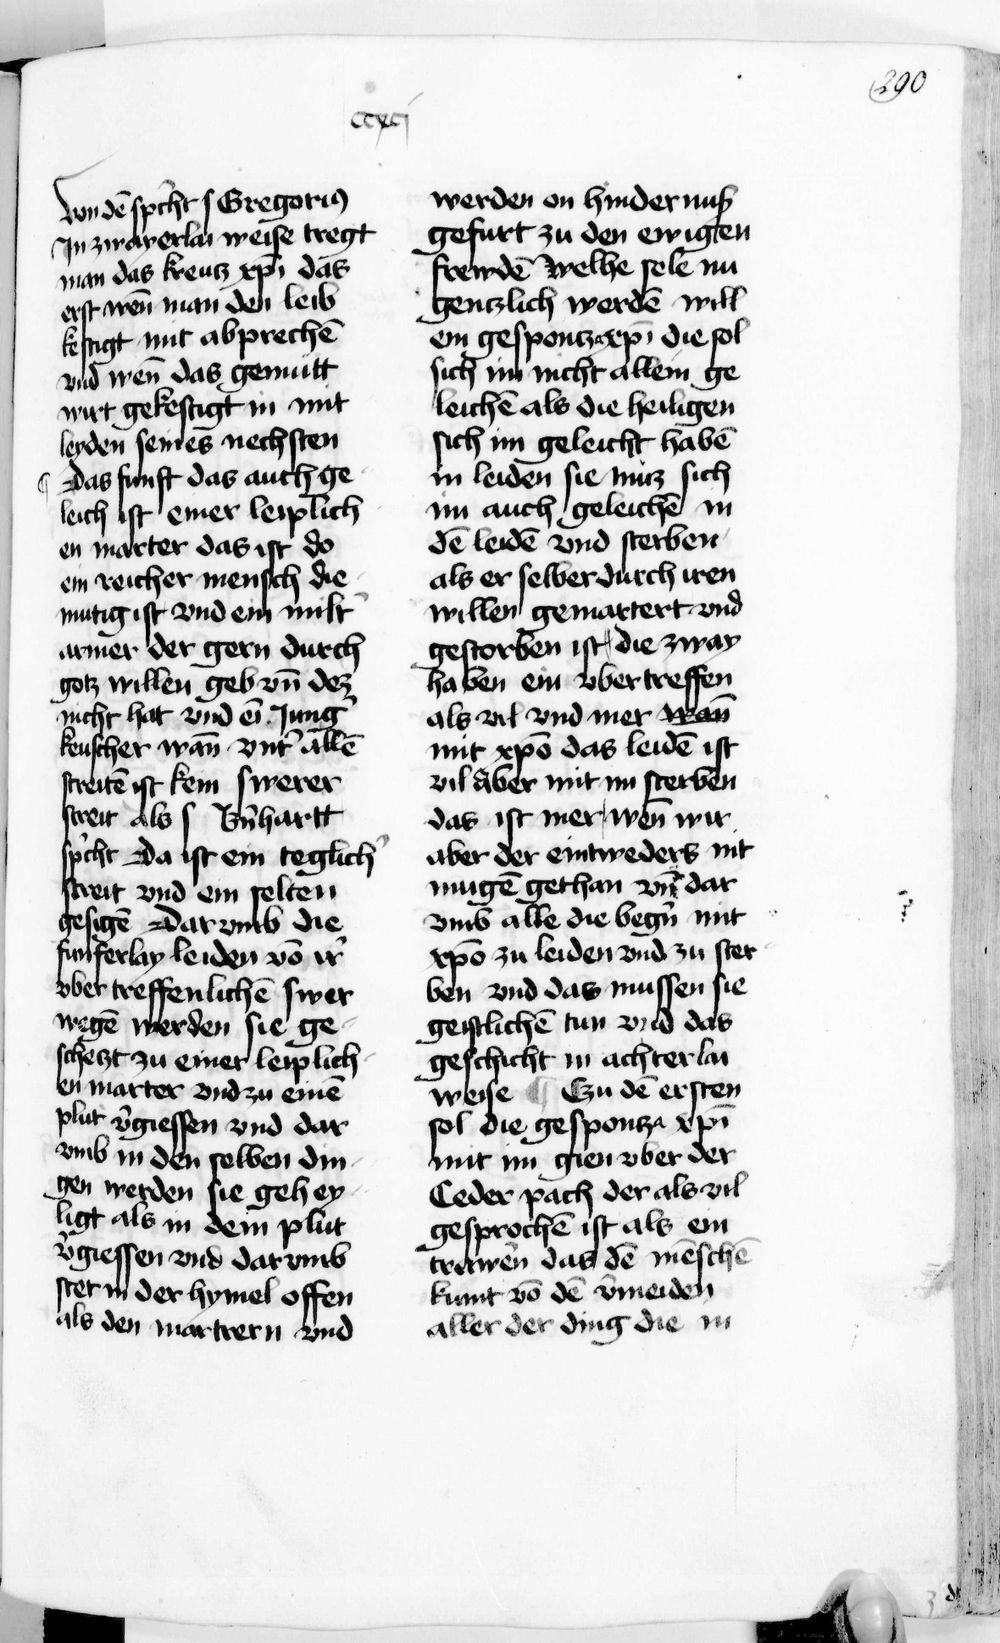 290
ccxcj
Von dē sp̄cht s Gregoriꝰ
In zwayerlai weise tregt
man das kreutz xp̄i das
erst wen̄ man den leib
kestigt mit abprechē
vnd wen̄ das gemutt
wirt gekestigt in mit
leyden seines nechsten
¶ Das funft das auch ge
leich ist einer leiplich
en marter das ist do
ein reicher mensch die
mutig ist vnd ein milt̛
armer der gern durch
gotz willen geb vn̄ dez
nicht hat vnd ei̅ Jung̛
keuscher wan̄ vnt̛ allē
streitē ist kein swerer
streit als s Bn̄hartt
sp̄cht Da ist ein teglich̛
streit vnd ein selten
gesigē Dar vmb die
funferlay leiden vō ir̛
vber treffenlichē swer
wegē werden sie ge
schetzt zu einer leiplich
en marter vnd zu einē
plut v̛giessen vnd dar
vmb in den selben din
gen werden sie gehey
ligt als in dem plut
v̛giessen vnd dar vmb
stet in der hymel offen
als den martrern vnd
werden on hindernuß
gefurt zu den ewigten
frewdē Welhe sele nu
gentzlich werdē will
ein gespontz xp̄i die sol
sich im nicht allein ge
leichē als die heiligen
sich im geleicht habē
in leiden sie mūz sich
im auch geleichē in
dē leidē vnd sterben
als er selber durch iren
willen gemartert vnd
gestorben ist die zway
haben ein vbertreffen
als vil vnd mer wan̄
mit xp̄o das leidē ist
vil Aber mit im sterben
das ist mer wen̄ wir
aber der eintweders nit
mugē gethan vn̄ dar
vmb alle die begn̄ mit
xp̄o zu leiden vnd zu ster
ben vnd das mussen sie
geistlichē tun vnd das
geschicht in achterlai
weise ¶ Czu dē ersten
sol die gespontz xp̄i
mit im gien vber der
Ceder pach der als vil
gesprochē ist als ein
trawrēn das dē mēschē
kumt vō dē v̛meiden
aller der ding die in